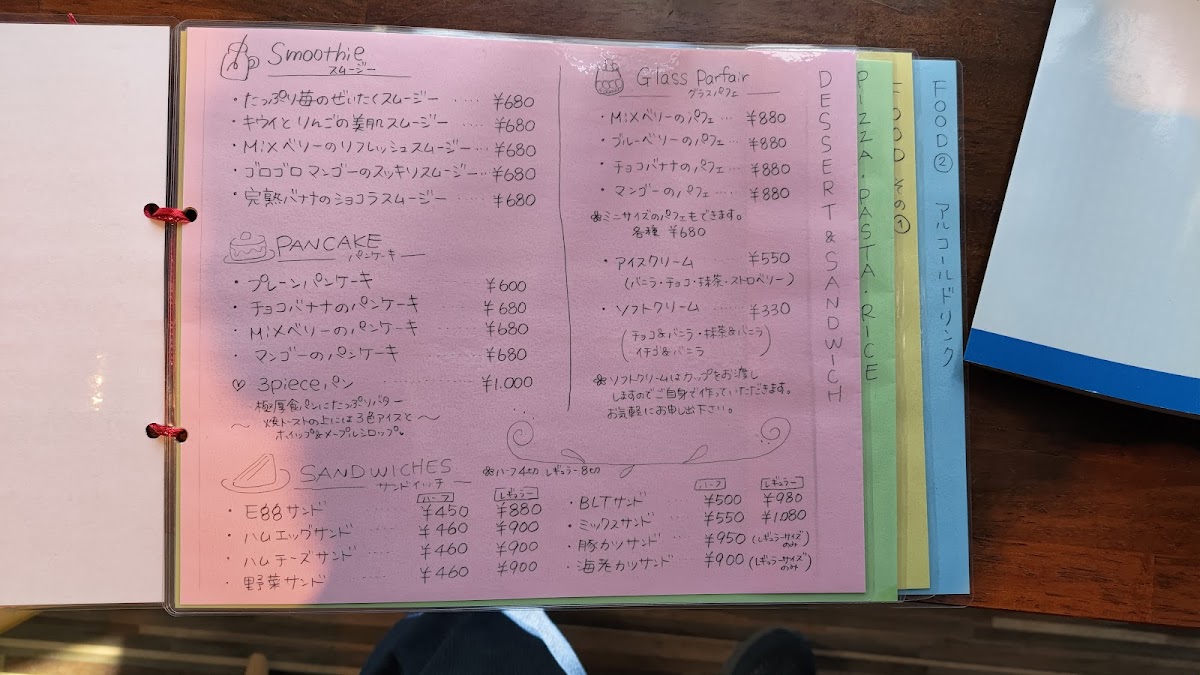 Smoothie
スムージー
・たっぷり苺のぜいたくスムージー ‥‥ ¥680
・キウイとりんごの美肌スムージー ‥‥ ¥680
・MiXベリーのリフレッシュスムージー‥ ¥680
・ゴロゴロマンゴーのスッキリスムージー‥ ¥680
・完熟バナナのショコラスムージー ‥‥ ¥680
PANCAKE
パンケーキ
・プレーンパンケーキ ¥600
・チョコバナナのパンケーキ ¥680
・MiXベリーのパンケーキ ¥680
・マンゴーのパンケーキ ¥680
♡ 3pieceパン ¥1.000
極厚食パンにたっぷりバター
〜 焼トーストの上には3色アイスと 〜
ホイップ&メープルシロップ♥
Glass Parfair
グラスパフェ
・MiXベリーのパフェ‥ ¥880
・ブルーベリーのパフェ‥ ¥880
・チョコバナナのパフェ‥ ¥880
・マンゴーのパフェ‥ ¥880
ミニサイズのパフェもできます。
各種 ¥680
・アイスクリーム ¥550
(バニラ・チョコ・抹茶・ストロベリー)
・ソフトクリーム ¥330
(チョコ&バニラ・抹茶&バニラ
イチゴ&バニラ)
ソフトクリームはカップをお渡し
しますのでご自身で作っていただきます。
お気軽にお申し出下さい。
SANDWICHES
サンドイッチ
ハーフ4切 レギュラー8切
ハーフ レギュラー
・Eggサンド ¥450 ¥880
・ハムエッグサンド ¥460 ¥900
・ハムチーズサンド ¥460 ¥900
・野菜サンド ¥460 ¥900
ハーフ レギュラー
・BLTサンド ¥500 ¥980
・ミックスサンド ¥550 ¥1.080
・豚カツサンド ¥950 (レギュラーサイズのみ)
・海老カツサンド ¥900 (レギュラーサイズのみ)
DESSERT & SANDWICH
PIZZA・PASTA・RICE
FOOD その①
FOOD② アルコールドリンク